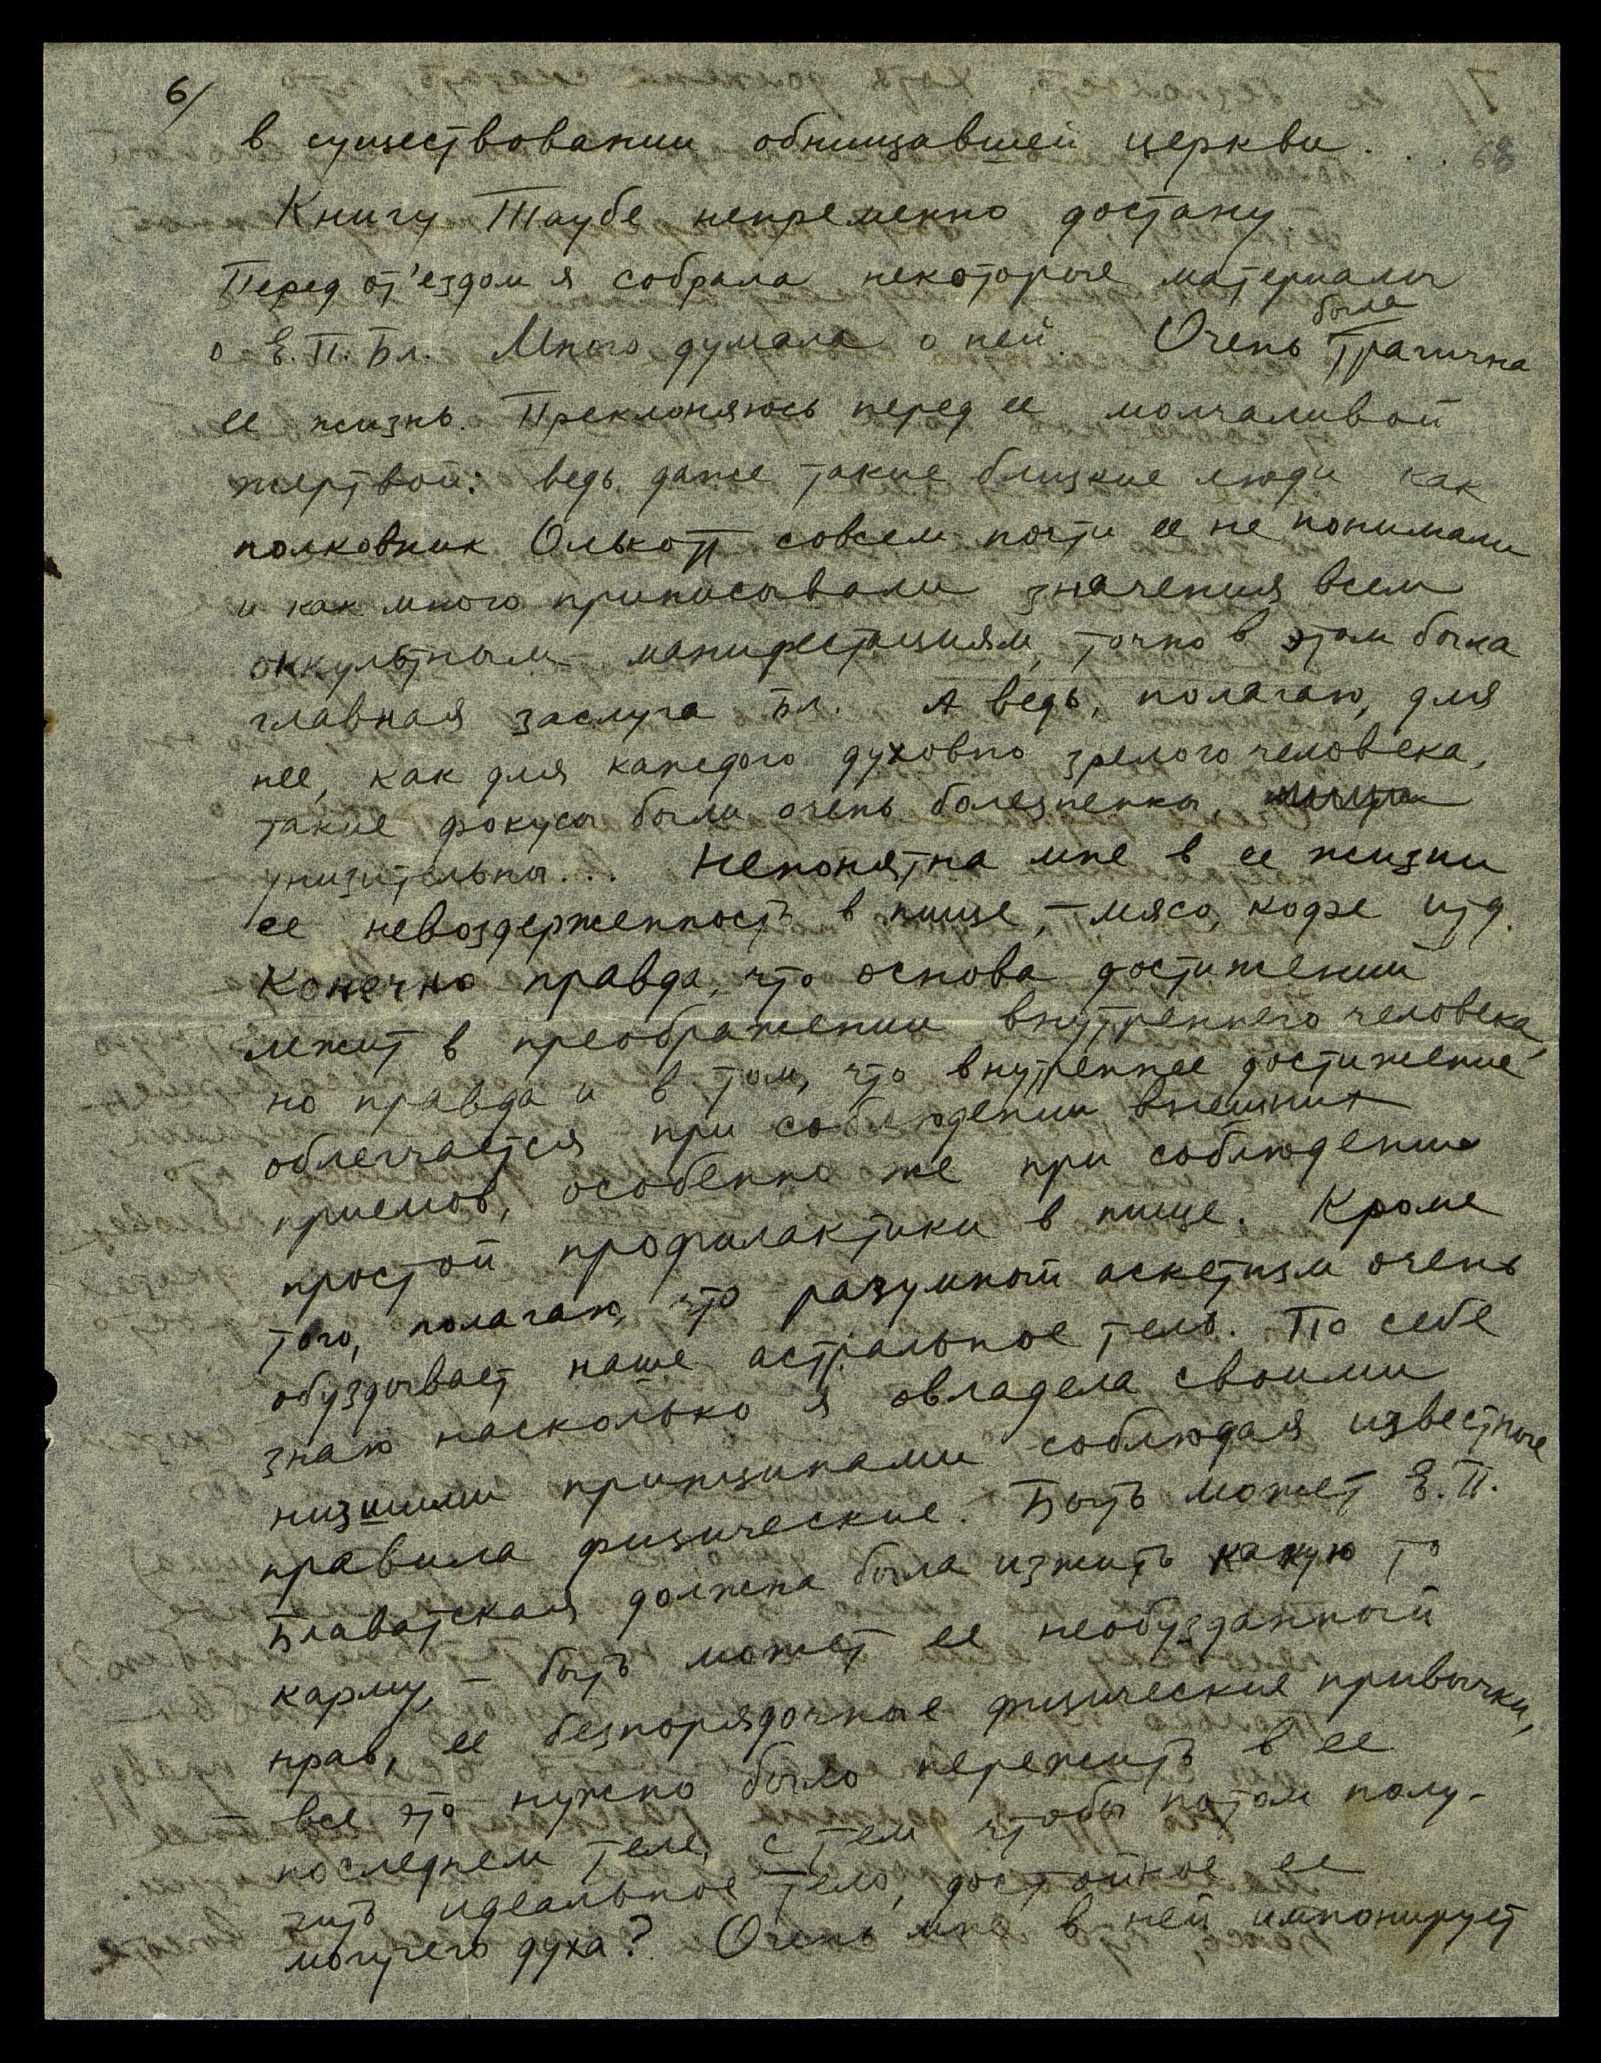 6/
68
в существовании обнищавшей церкви . . .
Книгу Таубе непременно достану
Перед от'ездом я собрала некоторые материалы
о Е.П.Бл. Много думала о ней. Очень была трагична
ее жизнь. Преклоняюсь перед ее молчаливой
жертвой: ведь даже такие близкие люди как
полковник Олькотт совсем почти ее не понимали
и как много приписывали значения всем
оккультным манифестациям, точно в этом была
главная заслуга Бл. А ведь, полагаю, для
нее, как для каждого духовно зрелого человека,
такие фокусы были очень болезненны,
унизительны... Непонятна мне в ее жизни
ее невоздержанность в пище, – мясо, кофе итд.
Конечно правда, что основа достижений
лежит в преображении внутреннего человека,
но правда и в том, что внутреннее достижение
облегчается при соблюдении внешних
приемов, особенно же при соблюдении
простой профилактики в пище. Кроме
того, полагаю, что разумный аскетизм очень
обуздывает наше астральное тело. По себе
знаю насколько я овладела своими
низшими принципами соблюдая известные
правила физические. Быть может Е.П.
Блаватская должна была изжить какую то
карму, – быть может ее необузданный
нрав, ее безпорядочные физические привычки,
– все это нужно было пережить в ее
последнем теле, с тем чтобы потом полу-
чить идеальное тело, достойное ее
могучего духа? Очень мне в ней импонирует